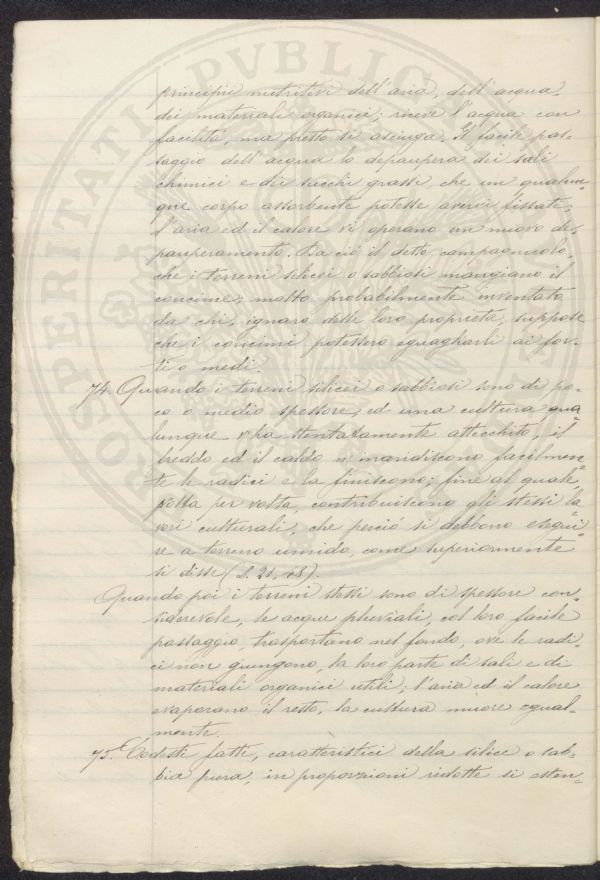 principii nutritivi dell'aria, dell'acqua,
dei materiali organici; riceve l'acqua con
facilità, ma presto si asciuga. Il facile pas-
saggio dell'acqua lo depaupera dei sali
chimici e dei succhi grassi, che un qualun-
que corpo assorbente potesse avervi fissati;
l'aria ed il calore vi operano un nuovo de-
pauperamento. Da ciò il detto campagnuolo,
che i terreni silicei o sabbiosi mangiano il
concime; motto probabilmente inventato
da chi, ignaro delle loro proprietà, suppose
che i concimi potessero eguagliarli ai for-
ti o medi.
74. Quando i terreni silicei o sabbiosi sono di po-
co o medio spessore, ed una cultura qua-
lunque v'ha stentatamente attecchito, il
freddo ed il caldo n'inaridiscono facilmen-
te le radici e la finiscono; fine al quale,
volta per volta, contribuiscono gli stessi la-
vori culturali, che perciò si debbono esegui-
re a terreno umido, come superiormente
si disse (§. 21, 48).
Quando poi i terreni stessi sono di spessore con-
siderevole, le acque pluviali, col loro facile
passaggio, trasportano nel fondo, ove le radi-
ci non giungono, la loro parte di sali e di
materiali organici utili; l'aria ed il calore
evaporano il resto, la cultura muore egual-
mente.
75. Codesti fatti, caratteristici della silice o sab-
bia pura, in proporzioni ridotte si esten-
PROSPERITATI PVBLICAE